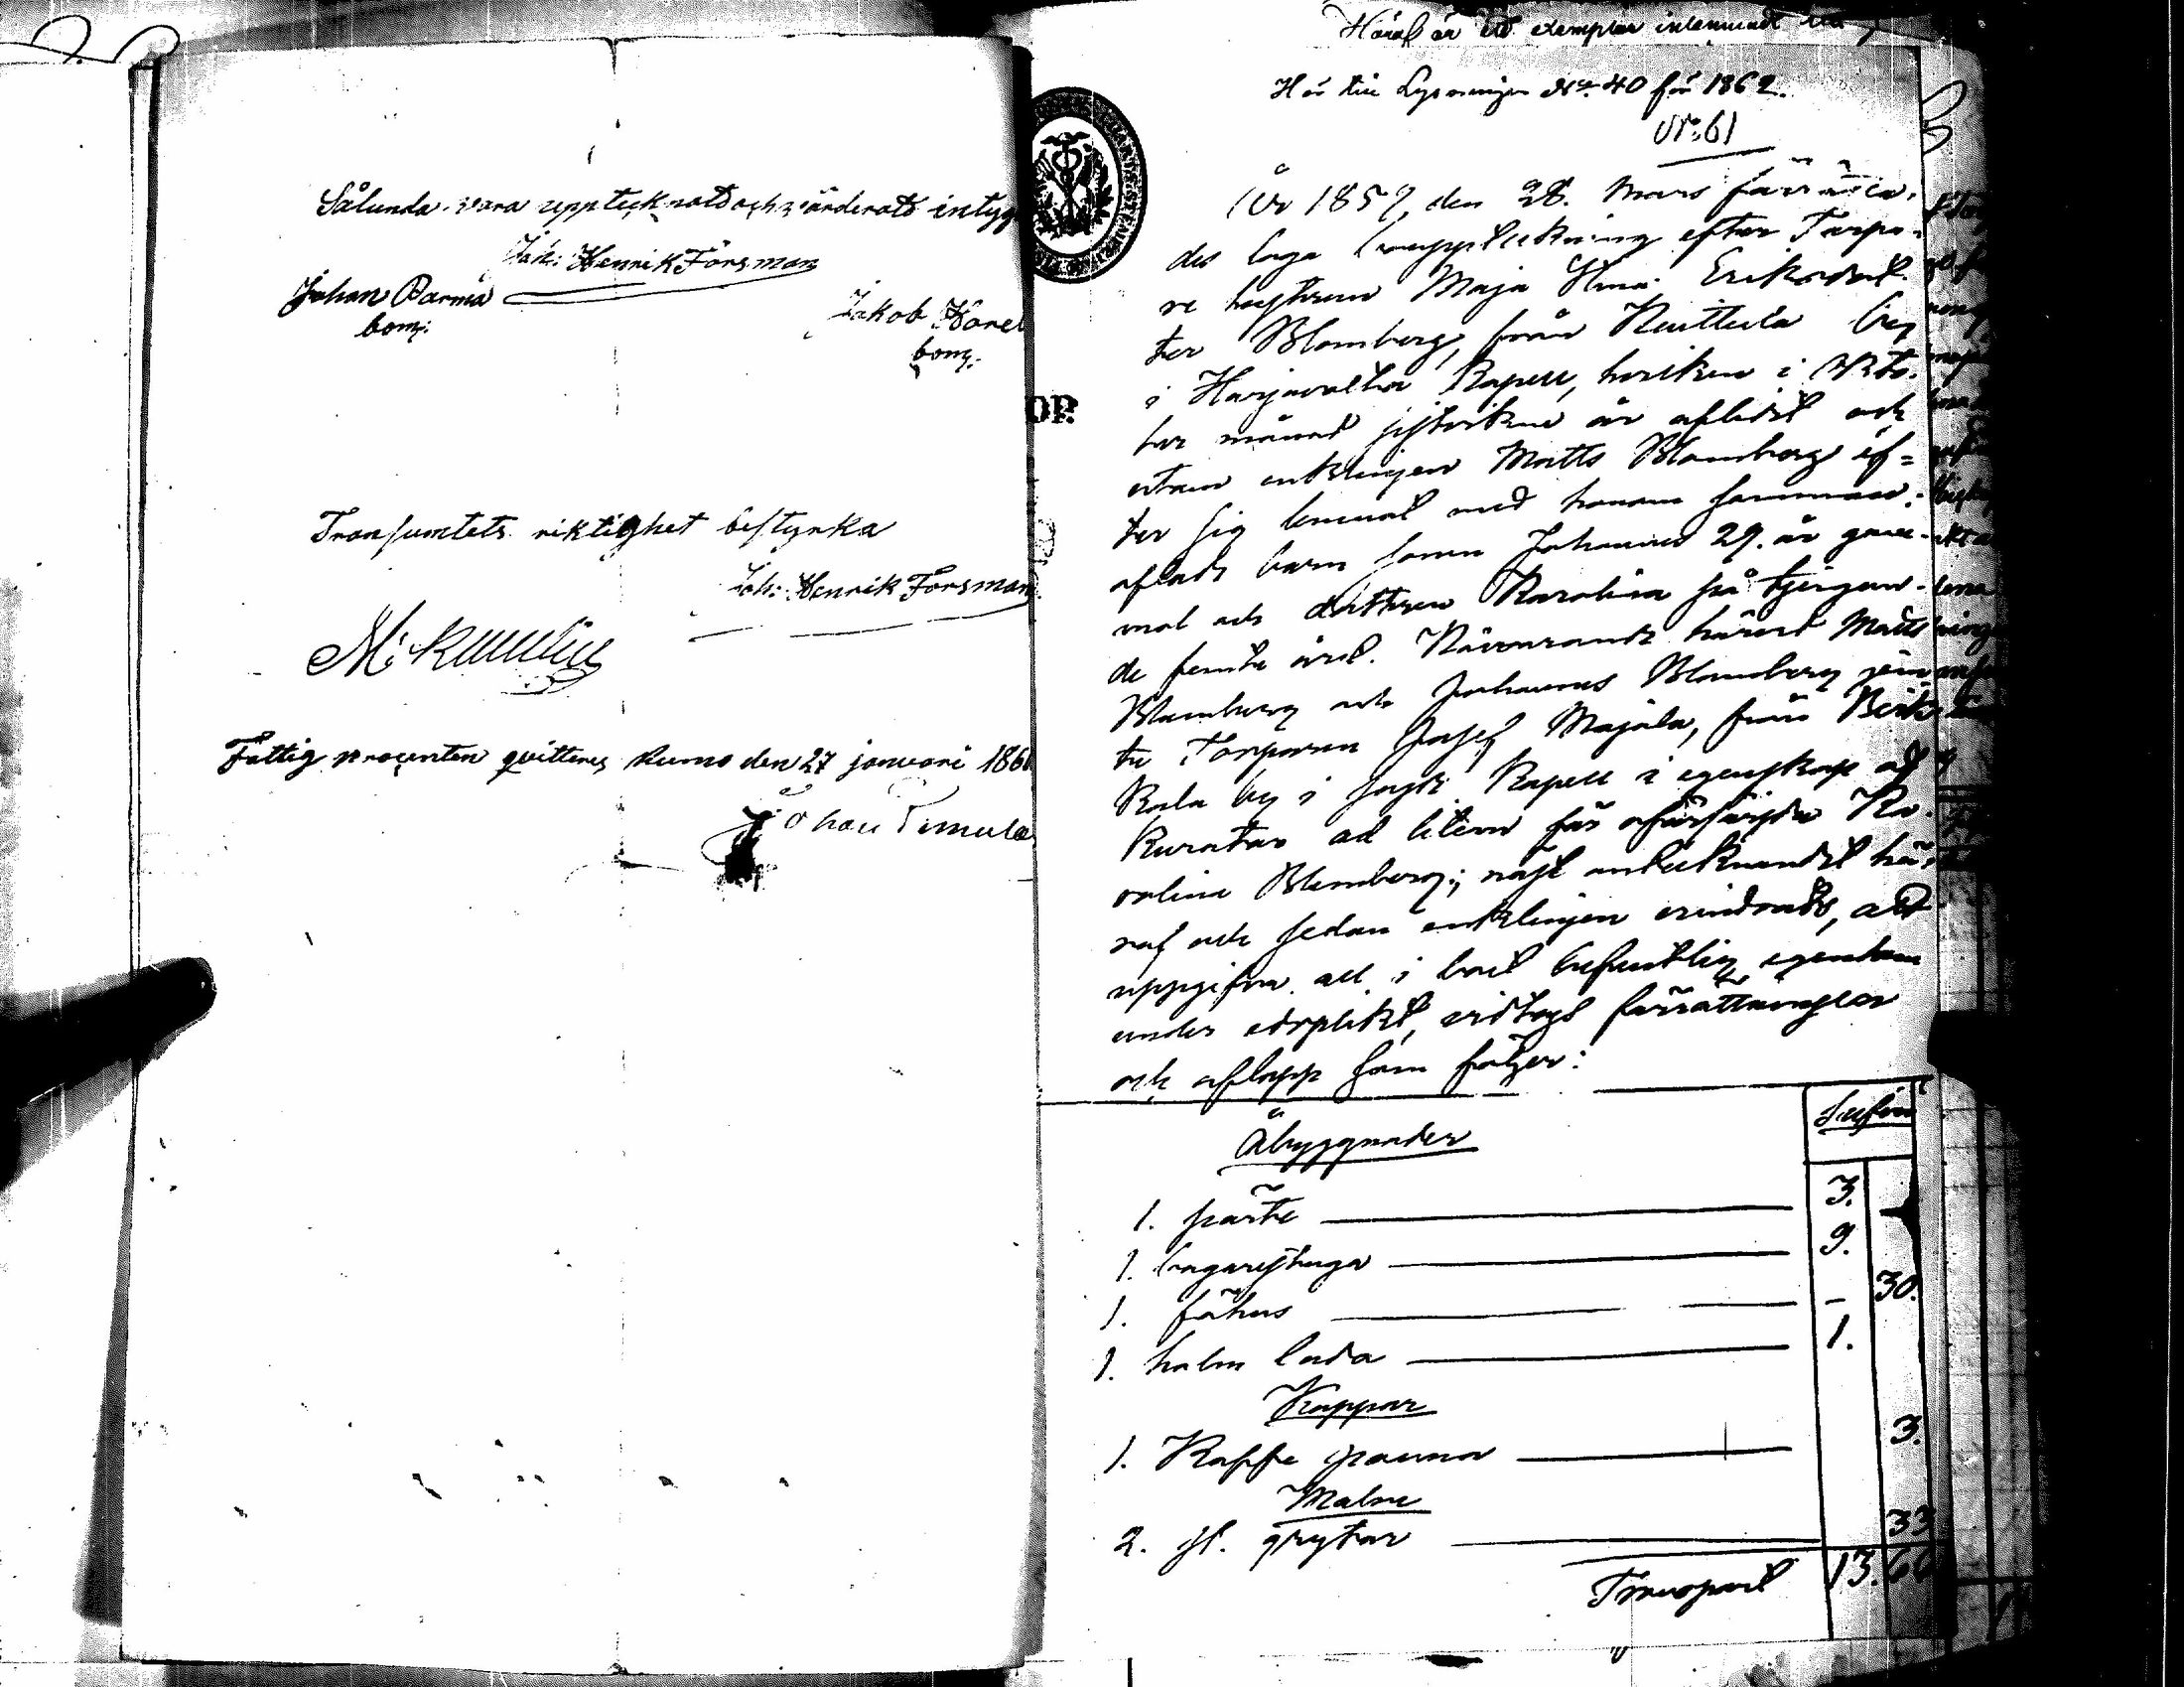 Sålunda vara upptecknadt och värderadt intyg
Joh: Henrik Forsman
Johan Parma
bom:
Jakob Kare
bom:
Transsumtets riktighet bestyrka
Joh: Henrik Forsman
Fattig procenten qvitteras Kumo den 27 januari 186
Johan
Häraf är ett exemplar inlemnadt till
Hör till Lysningen No 40 för 1862.
No: 61
År 1859, den 28. Mars förrätta-
des laga bouppteckning efter Torpa-
re hustrun Maja Stina Eriksdot-
ter Blomberg, från Nuittula by
i Harjavalta Kapell, hvilken i Okto-
ber månad sistvikne år aflidit och
utom enklingen Matts Blomberg ef-
ter sig lemnat med honom samman-
aflade barn sonen Johannes 29. år gam-
mal och dottren Karolina på tjugon-
de femte året. Närvarande härvid Matts
Blomberg och Johannes Blomberg jem-
te Torparen Josef Majala, från
by i Kapell i egenskap af
Kurator ad litem för Ka-
rolina Blomberg; näst antecknandet hä-
raf och sedan enklingen erindrats, att
uppgifva all i boet befintlig egendom
under edsplikt, vidtogs förrättningen
och aflopp som följer:
Åbyggnader
1. pörte 3.
1. bagarestuga 9.
1. fähus - 30.
1. halm lada 1.
Koppar
1. Kaffe panna 3.
Malm
2. st. grytor 33
Transport 13. 66